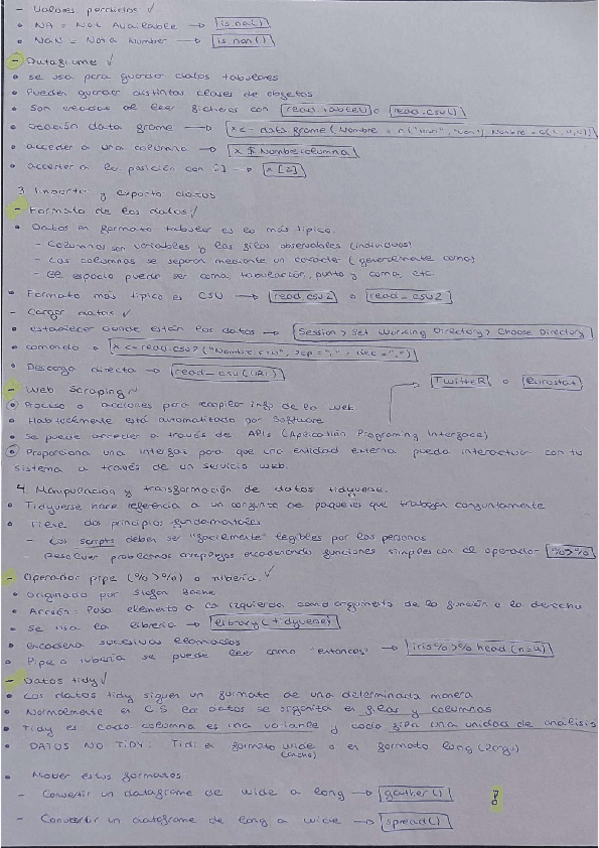 - Valores perdidos ✓
• NA = Not Available → is.na()
• NaN = Not a Number → is.nan()
- Dataframe ✓
• Se usa para guardar datos tabulares
• Pueden guardar distintas clases de objetos
• Son creados al leer ficheros con read.table() o read.csv()
• Creación data frame → x <- data.frame(Nombre =
• acceder a una columna → x $ Nombrecolumna
• acceder a la posición con [] → x [2]
3. Insertar y exportar datos
- Formato de los datos ✓
• Datos en formato tabular es lo más típico.
- Columnas son variables y las filas observables (individuos)
- Las columnas se separan mediante un carácter (generalmente coma)
- El espacio puede ser coma, tabulación, punto y coma, etc.
• Formato más típico es CSV → read.csv2 o read_csv2
- Cargar datos ✓
• establecer donde están los datos → Session > Set Working Directory > Choose Directory
• comando → x <- read.csv2("Nombre.csv", sep = ";", dec = ",")
• Descarga directa → read_csv(URL)
- Web Scraping ✓ TwitteR o Eurostat
• Proceso o acciones para recopilar info de la web
• Habitualmente está automatizado por software
• Se puede acceder a través de APIs (Application Programing Interface)
• Proporciona una interfaz para que una entidad externa pueda interactuar con tu
sistema a través de un servicio web.
4. Manipulación y transformación de datos tidyverse.
• Tidyverse hace referencia a un conjunto de paquetes que trabajan conjuntamente
• Tiene dos principios fundamentales
- Los scripts deben ser "fácilmente" legibles por las personas
- Resolver problemas complejos encadenando funciones simples con el operador %>%
- Operador pipe (%>%) o tubería. ✓
• Originado por Stefan Bache
• Acción: Pasa elemento a la izquierda como argumento de la función a la derecha
• Se usa la librería → library(tidyverse)
• encadena sucesivas llamadas
• Pipe o tubería se puede leer como "entonces" → iris %>% head (n=4)
- Datos tidy ✓
• Los datos tidy siguen un formato de una determinada manera
• Normalmente en CS los datos se organiza en filas y columnas
• Tidy es cada columna es una variable y cada fila una unidad de análisis
• DATOS NO TIDY: formato wide o en formato long (largo)
(ancho)
• Mover estos formatos
- Convertir un dataframe de wide a long → gather()
- Convertir un dataframe de long a wide → spread()